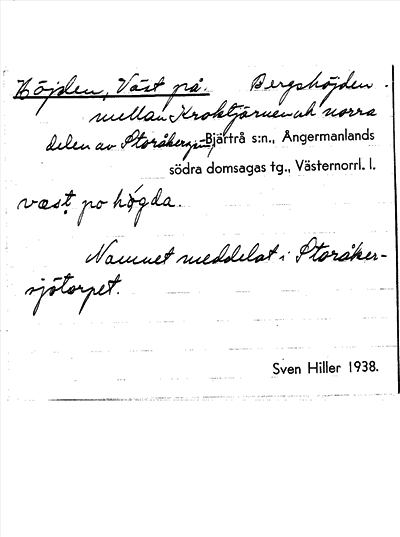 Höjden, Väst på. Bergshöjden.
mellan Kroktjärnen och norra
delen av Storåkersjön, Bjärtrå s:n., Ångermanlands
södra domsagas tg., Västernorrl. l.
væst po hø̜gda.
Namnet meddelat i Storåker-
sjötorpet.
Sven Hiller 1938.